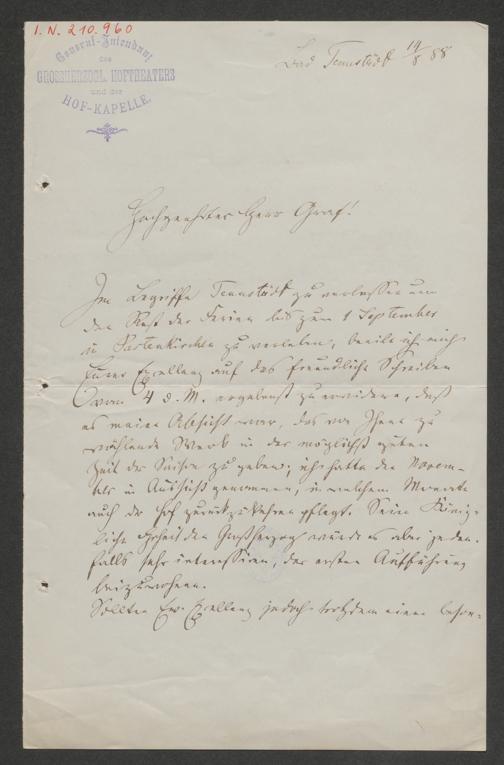 I. N. 210.960
General-Intendanz
des
GROSSHERZOGL. HOFTHEATERS
und der
HOF-KAPELLE.
Bad Tennstädt 14/8 88
Hochgeehrter Herr Graf!
Im Begriffe Tennstädt zu verlassen um
den Rest der Ferien bis zum 1 September
in Partenkirchen zu verleben, beeile ich mich
Eurer Exzellenz auf das freundliche Schreiben
vom 4 d. M. ergebenst zu erwidern, daß
es meine Absicht war, das von Ihnen zu
wählende Werk in der möglichst guten
Zeit der Saison zu geben; ich hatte den Novem-
ber in Aussicht genommen, in welchem Monate
auch der Hof zurückzukehren pflegt. Seine König-
liche Hoheit den Großherzog würde es aber jeden-
falls sehr interessiren, der ersten Aufführung
beizuwohnen.
Sollten Ew. Exzellenz jedoch trotzdem einen beson-